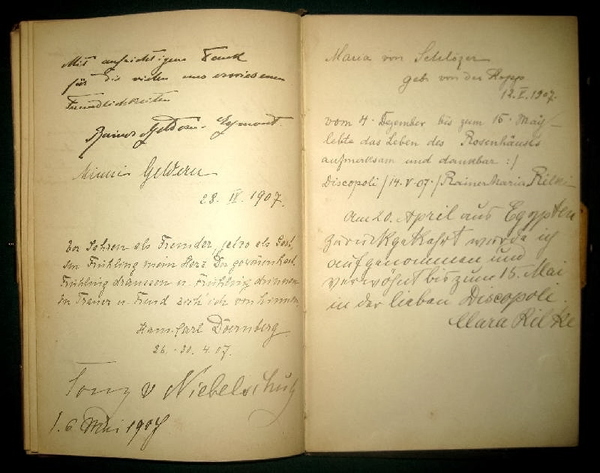 Mit aufrichtigem Dank
für die vielen uns erwiesenen
Freundlichkeiten
Rainer Geldern-Egmont.
Minni Geldern
28. II. 1907.
Vor Jahren als Fremder, jetzo als Gast
im Frühling mein Herz Du gewonnen hast
Frühling draussen u. Frühling drinnen
in Treuen u. Freud zieh ich von hinnen
Hans-Carl Dörnberg
26.-30. 4. 07.
Tony v Niebelschütz
1. 6 Mai 1907
Maria von Schlözer
geb. von der Ropp
12. V. 1907.
vom 4. Dezember bis zum 16. May
lebte das Leben des Rosenhäusls
aufmerksam und dankbar :/
Discopoli / 14. V. 07. / Rainer Maria Rilke
Am 20. April aus Egypten
zurückgekehrt wurde ich
aufgenommen und
verwöhnt bis zum 16. Mai
in der lieben Discopoli
Clara Rilke